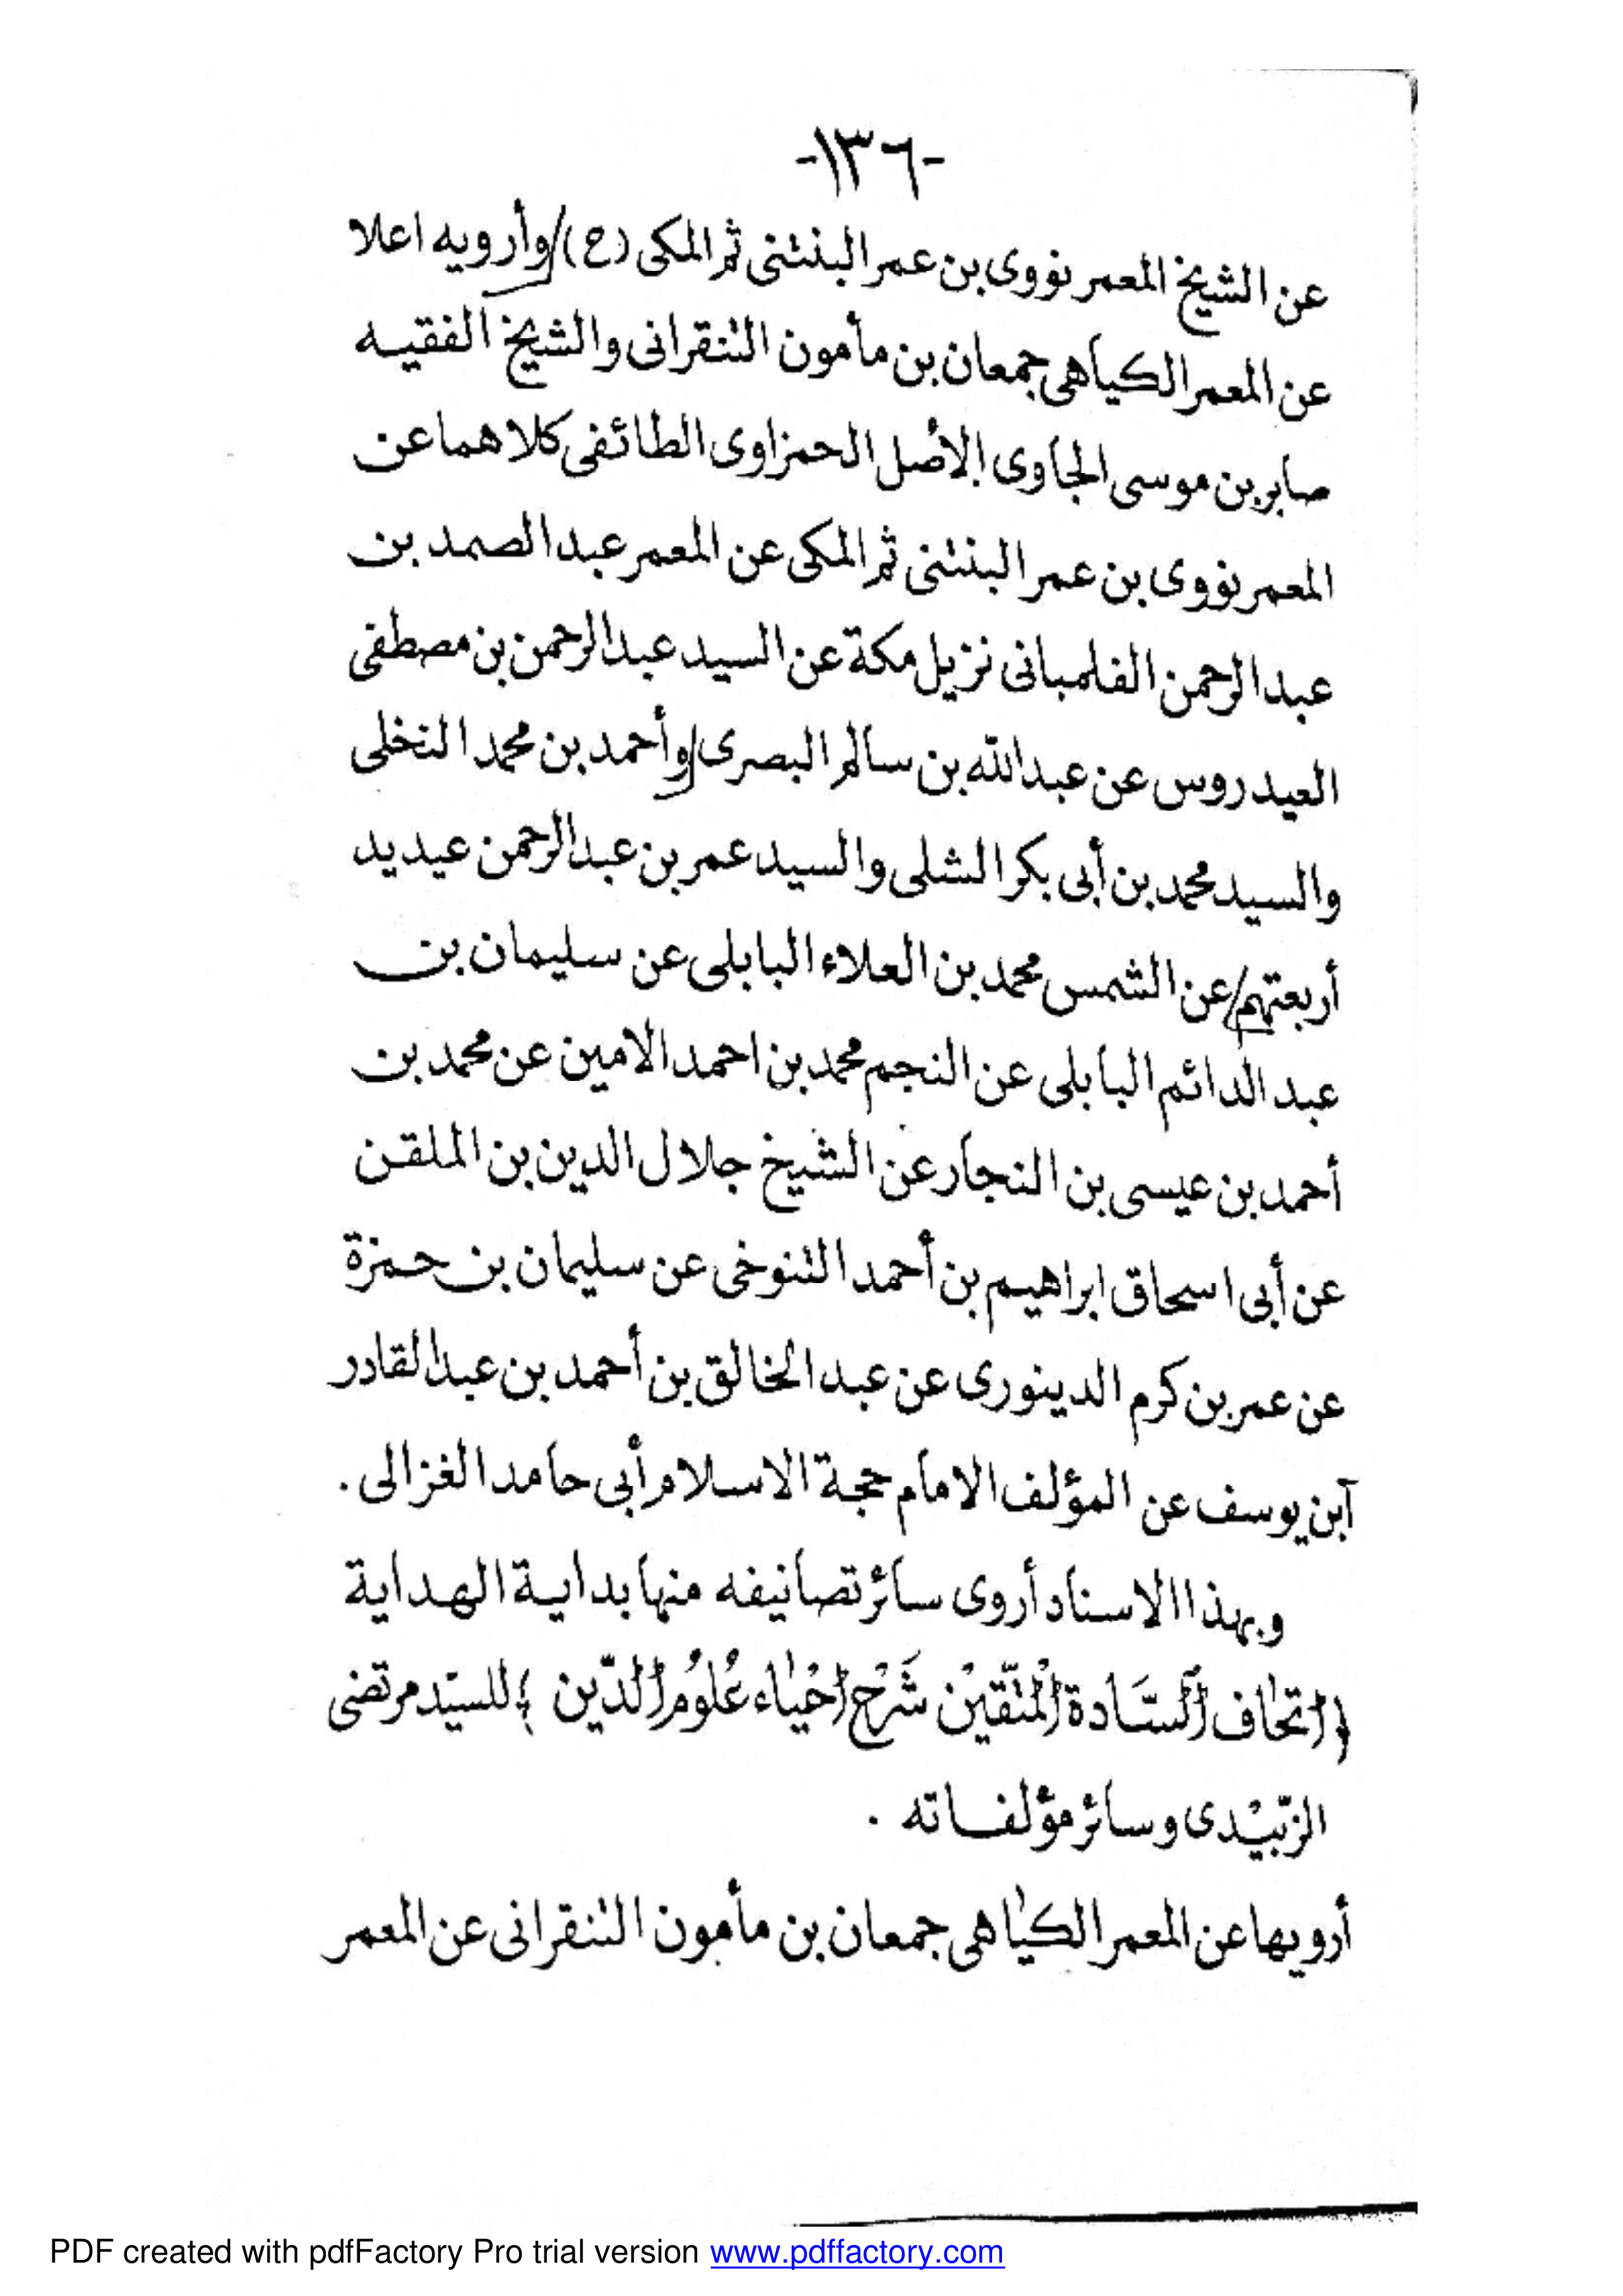 -١٣٦-
عن الشيخ المعمر نووى بن عمر البنتنى ثم المكى (ح)/وأرويه اعلا
عن المعمر الكياهى جمعان بن مأمون التنقرانى والشيخ الفقيه
صابر بن موسى الجاوى الأصل الحمزاوى الطائفى كلاهما عن
المعمر نووى بن عمر البنتنى ثم المكى عن المعمر عبد الصمد بن
عبد الرحمن الفلمبانى نزيل مكة عن السيد عبد الرحمن بن مصطفى
العيدروس عن عبد الله بن سالم البصرى/وأحمد بن محمد النخلى
والسيد محمد بن أبى بكر الشلى والسيد عمر بن عبد الرحمن عيديد
أربعتهم/عن الشمس محمد بن العلاء البابلى عن سليمان بن
عبد الدائم البابلى عن النجم محمد بن احمد الامين عن محمد بن
أحمد بن عيسى بن النجار عن الشيخ جلال الدين بن الملقن
عن أبى اسحاق ابراهيم بن أحمد التنوخى عن سليمان بن حمزة
عن عمر بن كرم الدينورى عن عبد الخالق بن أحمد بن عبد القادر
آبن يوسف عن المؤلف الامام حجة الاسلام أبى حامد الغزالى .
وبهذا الاسناد أروى سائر تصانيفه منها بداية الهداية
﴿اتحاف السَّادة المُتَّقِيْن شَرْح إحْيَاء عُلُوُم الدّين﴾ للسيّد مرتضى
الزّبيْدى وسائر مؤلفاته .
أرويها عن المعمر الكياهى جمعان بن مأمون التنقرانى عن المعمر
PDF created with pdfFactory Pro trial version www.pdffactory.com